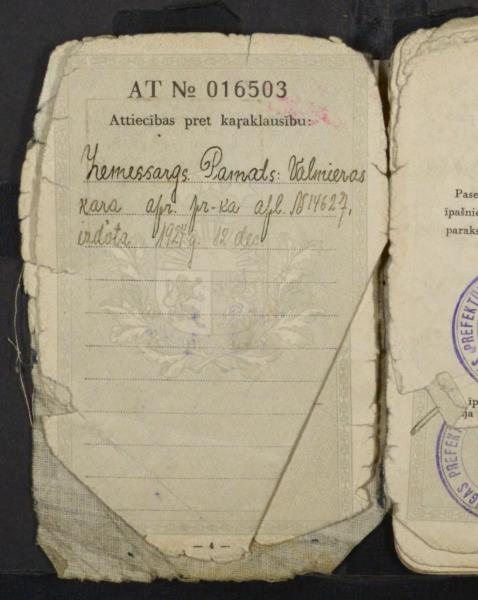 AT № 016503
Attiecības pret kaŗaklausību:
Zemessargs. Pamats: Valmieras
kara apr. pr-ka apl. № 14627,
izdota 1927 g. 12 dec
— 4 —
Pase
īpašnie
paraks
S PREFEKTŪ
īp
ja
GAS PREFEKT